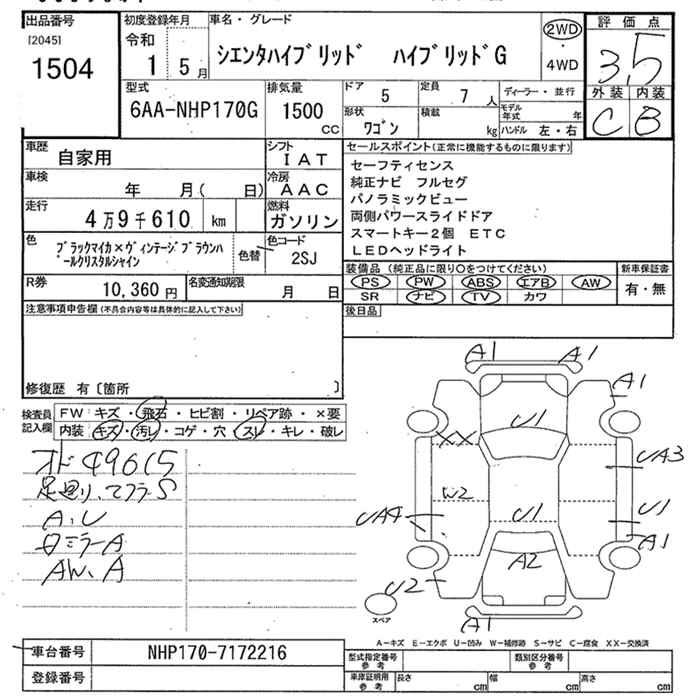 出品番号
[2045]
1504
初度登録年月
令和
1 5月
車名・グレード
シエンタハイブリッド ハイブリッドG
2WD
・
4WD
評価点
3.5
外装 内装
C B
型式
6AA-NHP170G
排気量
1500
CC
ドア 5
定員 7人
ディーラー・並行
形状 ワゴン
積載 kg
モデル年式 年
ハンドル 左・右
車歴 自家用
シフト IAT
車検 年 月( 日)
冷房 AAC
走行 4万9千610 km
燃料 ガソリン
色 ブラックマイカ×ヴィンテージブラウンパールクリスタルシャイン
色替
色コード 2SJ
R券 10,360円
名変通知期限 月 日
セールスポイント(正常に機能するものに限ります)
セーフティセンス
純正ナビ フルセグ
パノラミックビュー
両側パワースライドドア
スマートキー2個 ETC
LEDヘッドライト
装備品(純正品に限り○をつけてください)
PS PW ABS エアB AW
SR ナビ TV カワ
新車保証書
有・無
後日品
注意事項申告欄(不具合内容等は具体的に記入して下さい)
修復歴 有〔箇所 〕
検査員記入欄
FW キズ・飛石・ヒビ割・リペア跡・×要
内装 キズ・汚レ・コゲ・穴・スレ・キレ・破レ
オド 49615
足廻り、マフラーS
A、U
ロミラーA
AW、A
A1 A1
A1
U1
XX
UA3
W2
UA4
U1
U1
A1
A2
U2
A1
スペア
A-キズ E-エクボ U-凹み W-補修跡 S-サビ C-腐食 XX-交換済
車台番号 NHP170-7172216
登録番号
型式指定番号 参考
類別区分番号 参考
車庫証明用 参考
長さ cm 幅 cm 高さ cm